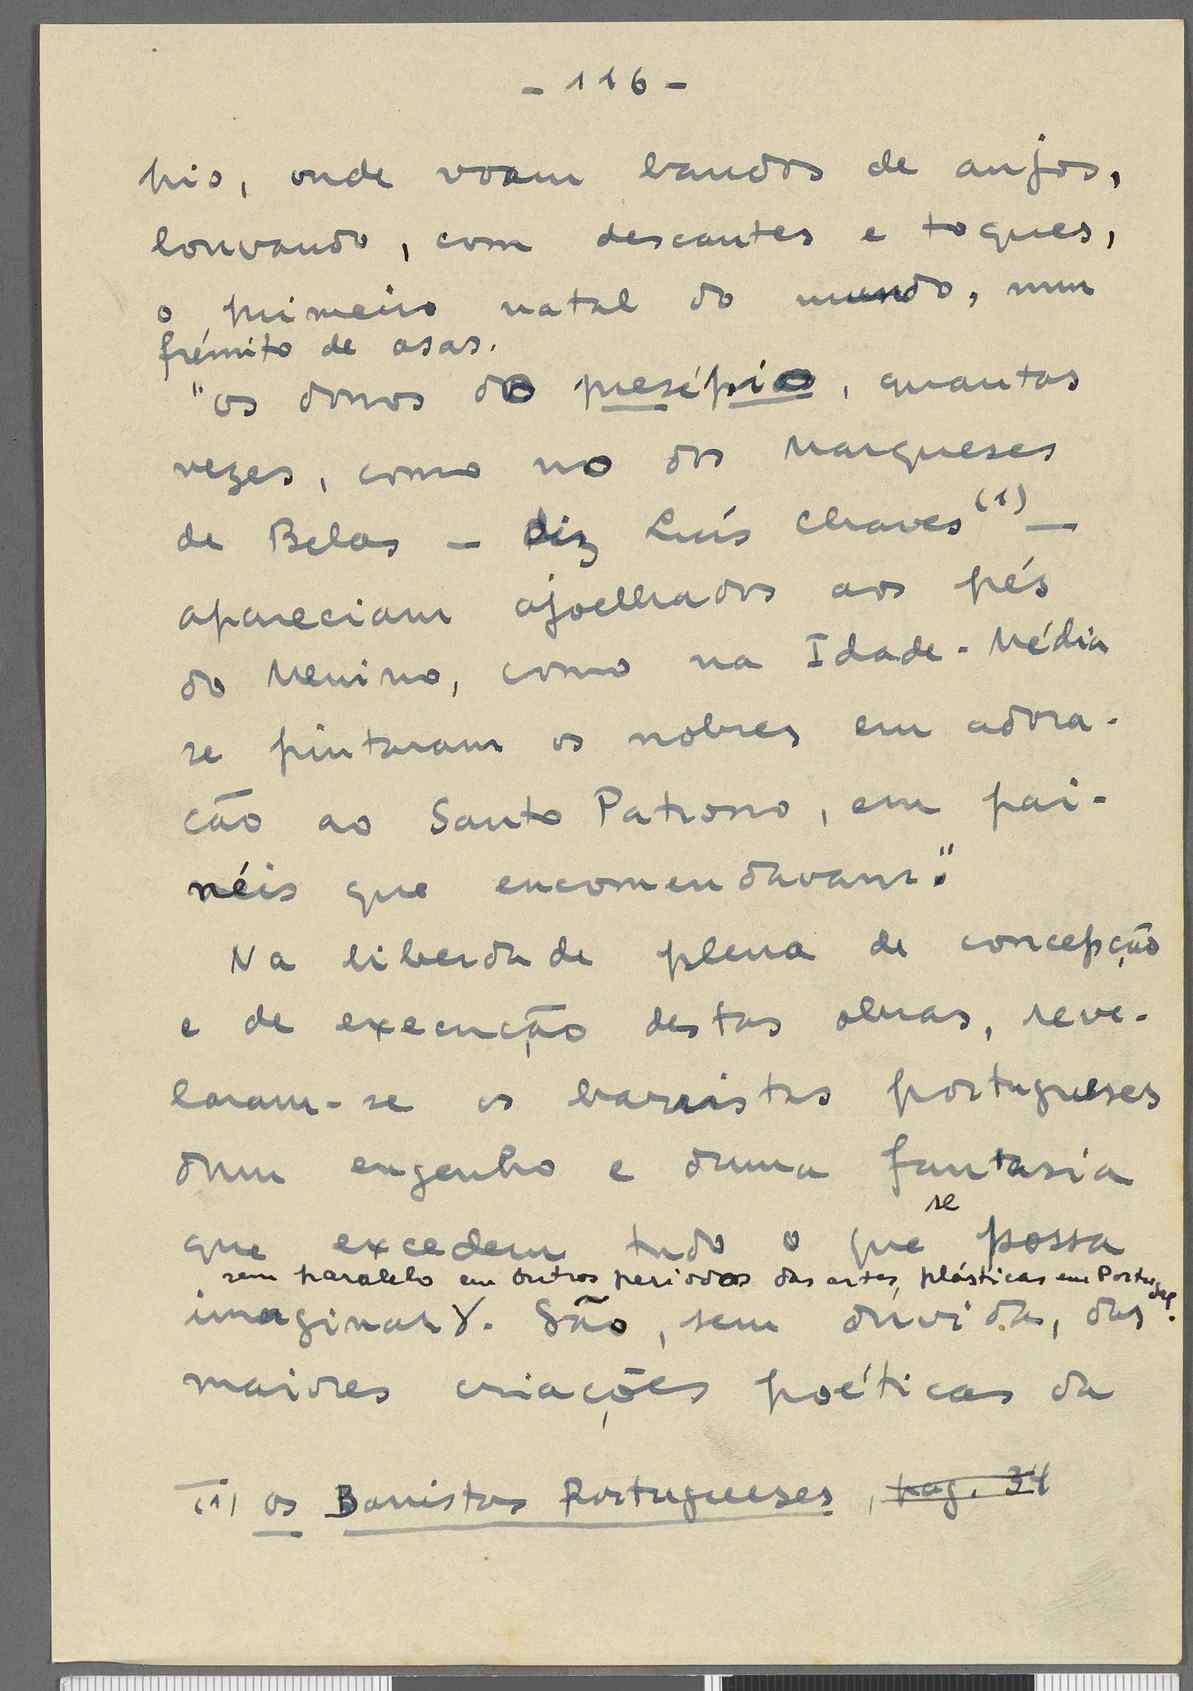 - 116 -
pio, onde voam bandos de anjos,
louvando, com descantes e toques,
o primeiro natal do mundo, num
frémito de asas.
"os donos do presépio, quantas
vezes, como no dos Marqueses
de Belas - diz Luís Chaves (1) -
apareciam ajoelhados aos pés
do Menino, como na Idade-Média
se pintaram os nobres em adora-
ção ao Santo Patrono, em pai-
néis que encomendavam."
Na liberdade plena de concepção
e de execução destas obras, reve-
laram-se os barristas portugueses
dum engenho e duma fantasia
se
que excedem tudo o que possa
sem paralelo em outros periodos das artes plásticas em Portugal.
imaginar. São, sem duvida, das
maiores criações poéticas da
(1) Os Barristas Portugueses, pag. 34